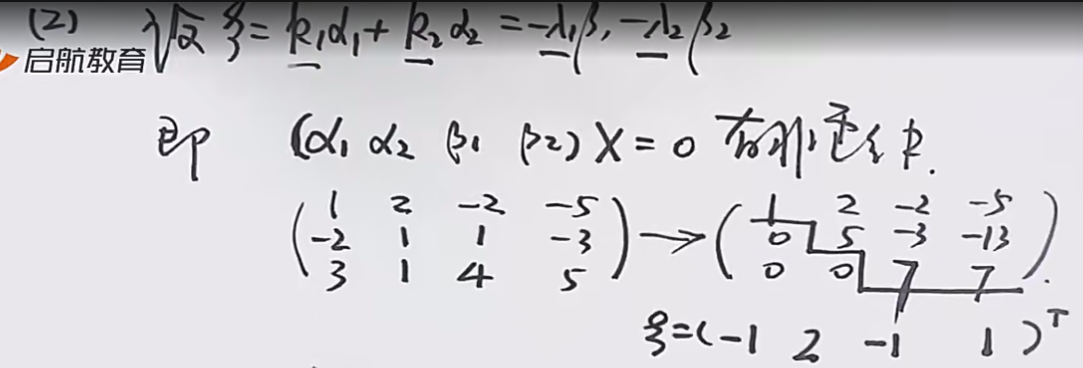 (2) 设 ξ = k₁α₁ + k₂α₂ = -λ₁β₁ - λ₂β₂
启航教育
即 (α₁ α₂ β₁ β₂) X = 0 有非零解.
( 1 2 -2 -5 -2 1 1 -3 3 1 4 5 ) → ( 1 2 -2 -5 0 5 -3 -13 0 0 7 7 ).
ξ = (-1 2 -1 1)ᵀ